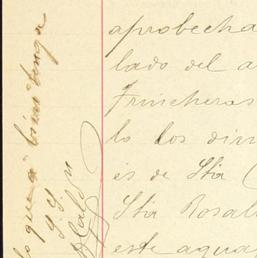 aprobecha
lado del a
Trincheras
lo los din
es de Sta
Sta Rosal
este agua
lo que a bien tenga